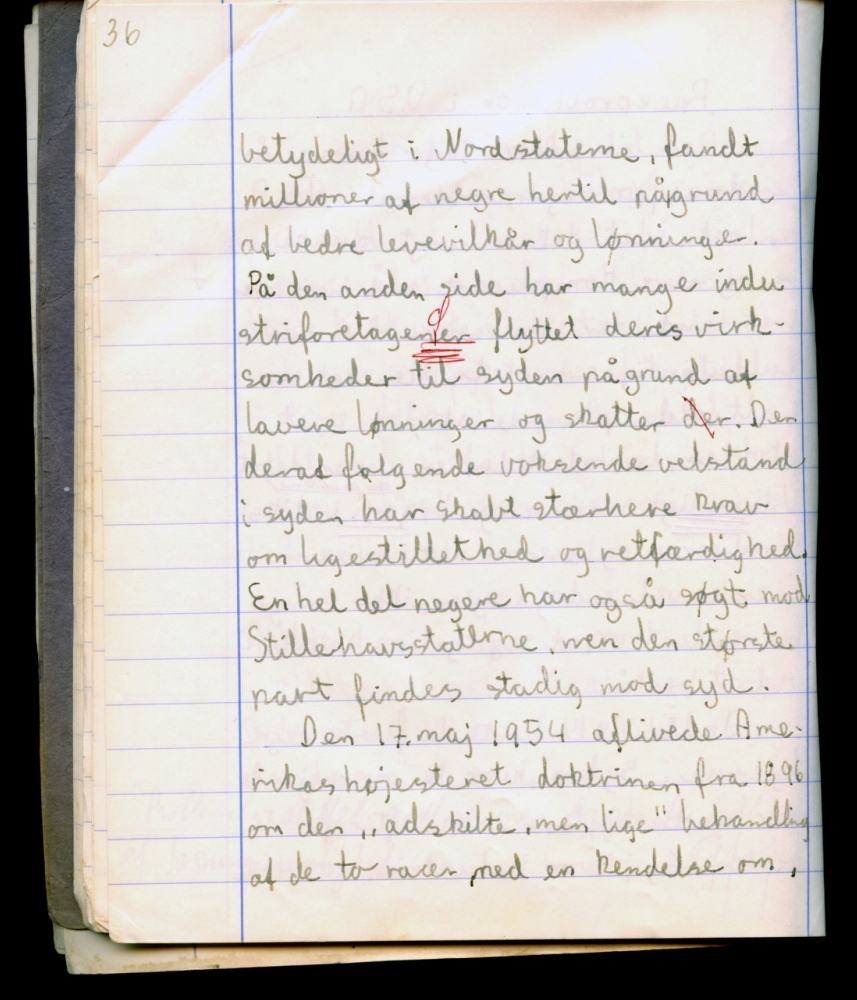 36
betydeligt i Nordstaterne, fandt
millioner af negre hertil pågrund
af bedre levevilkår og lønninger.
På den anden side har mange indu
striforetagener flyttet deres virk-
d
somheder til syden pågrund af
lavere lønninger og skatter der. Den
deraf følgende voksende velstand
i syden har skabt stærkere krav
om ligestillethed og retfærdighed.
En hel del negere har også søgt mod
Stillehavsstaterne, men den største
part findes stadig mod syd.
Den 17. maj 1954 aflivede Ame-
rikas højesteret doktrinen fra 1896
om den „adskilte, men lige" behandling
af de to racer, med en kendelse om,